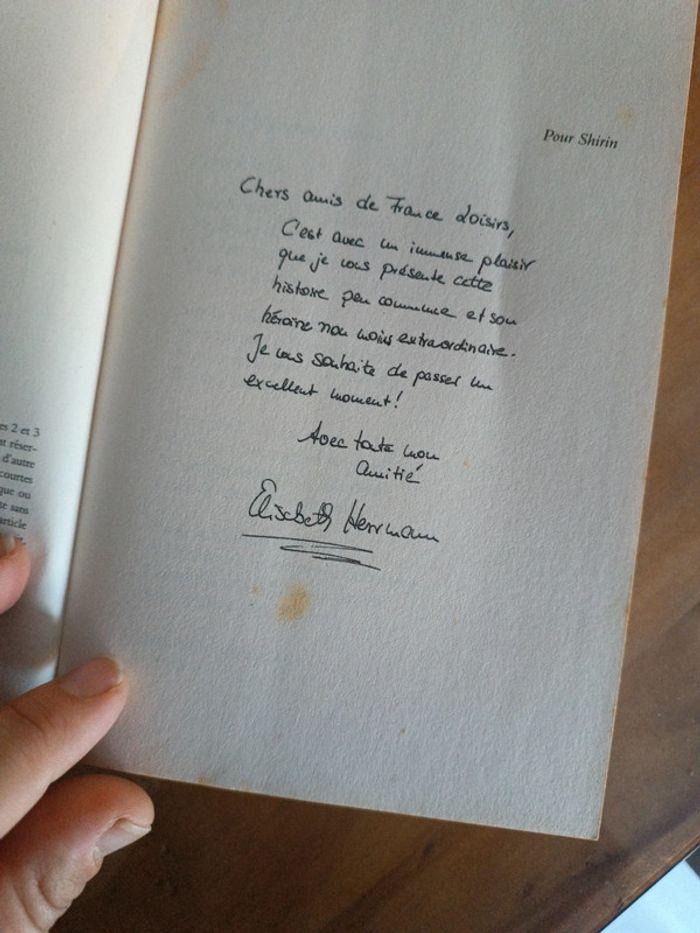 es 2 et 3
t réser-
d'autre
courtes
que ou
te sans
article
Pour Shirin
Chers amis de France Loisirs,
C'est avec un immense plaisir
que je vous présente cette
histoire peu commune et son
héroïne non moins extraordinaire.
Je vous souhaite de passer un
excellent moment!
Avec toute mon
amitié
Elisabeth Herrmann